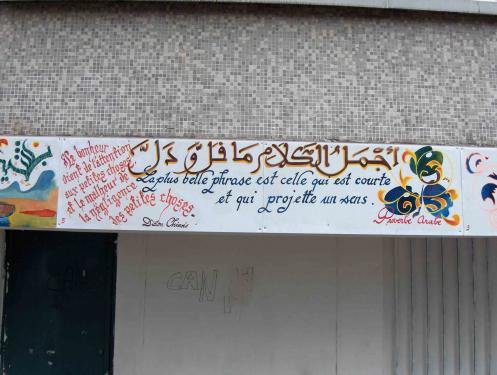 Le bonheur
vient de l'attention
aux petites choses
et le malheur de
la négligence
des petites choses.
Dicton Chinois
أجمل الكلام ما قل و دل
La plus belle phrase est celle qui est courte
et qui projette un sens.
Proverbe Arabe